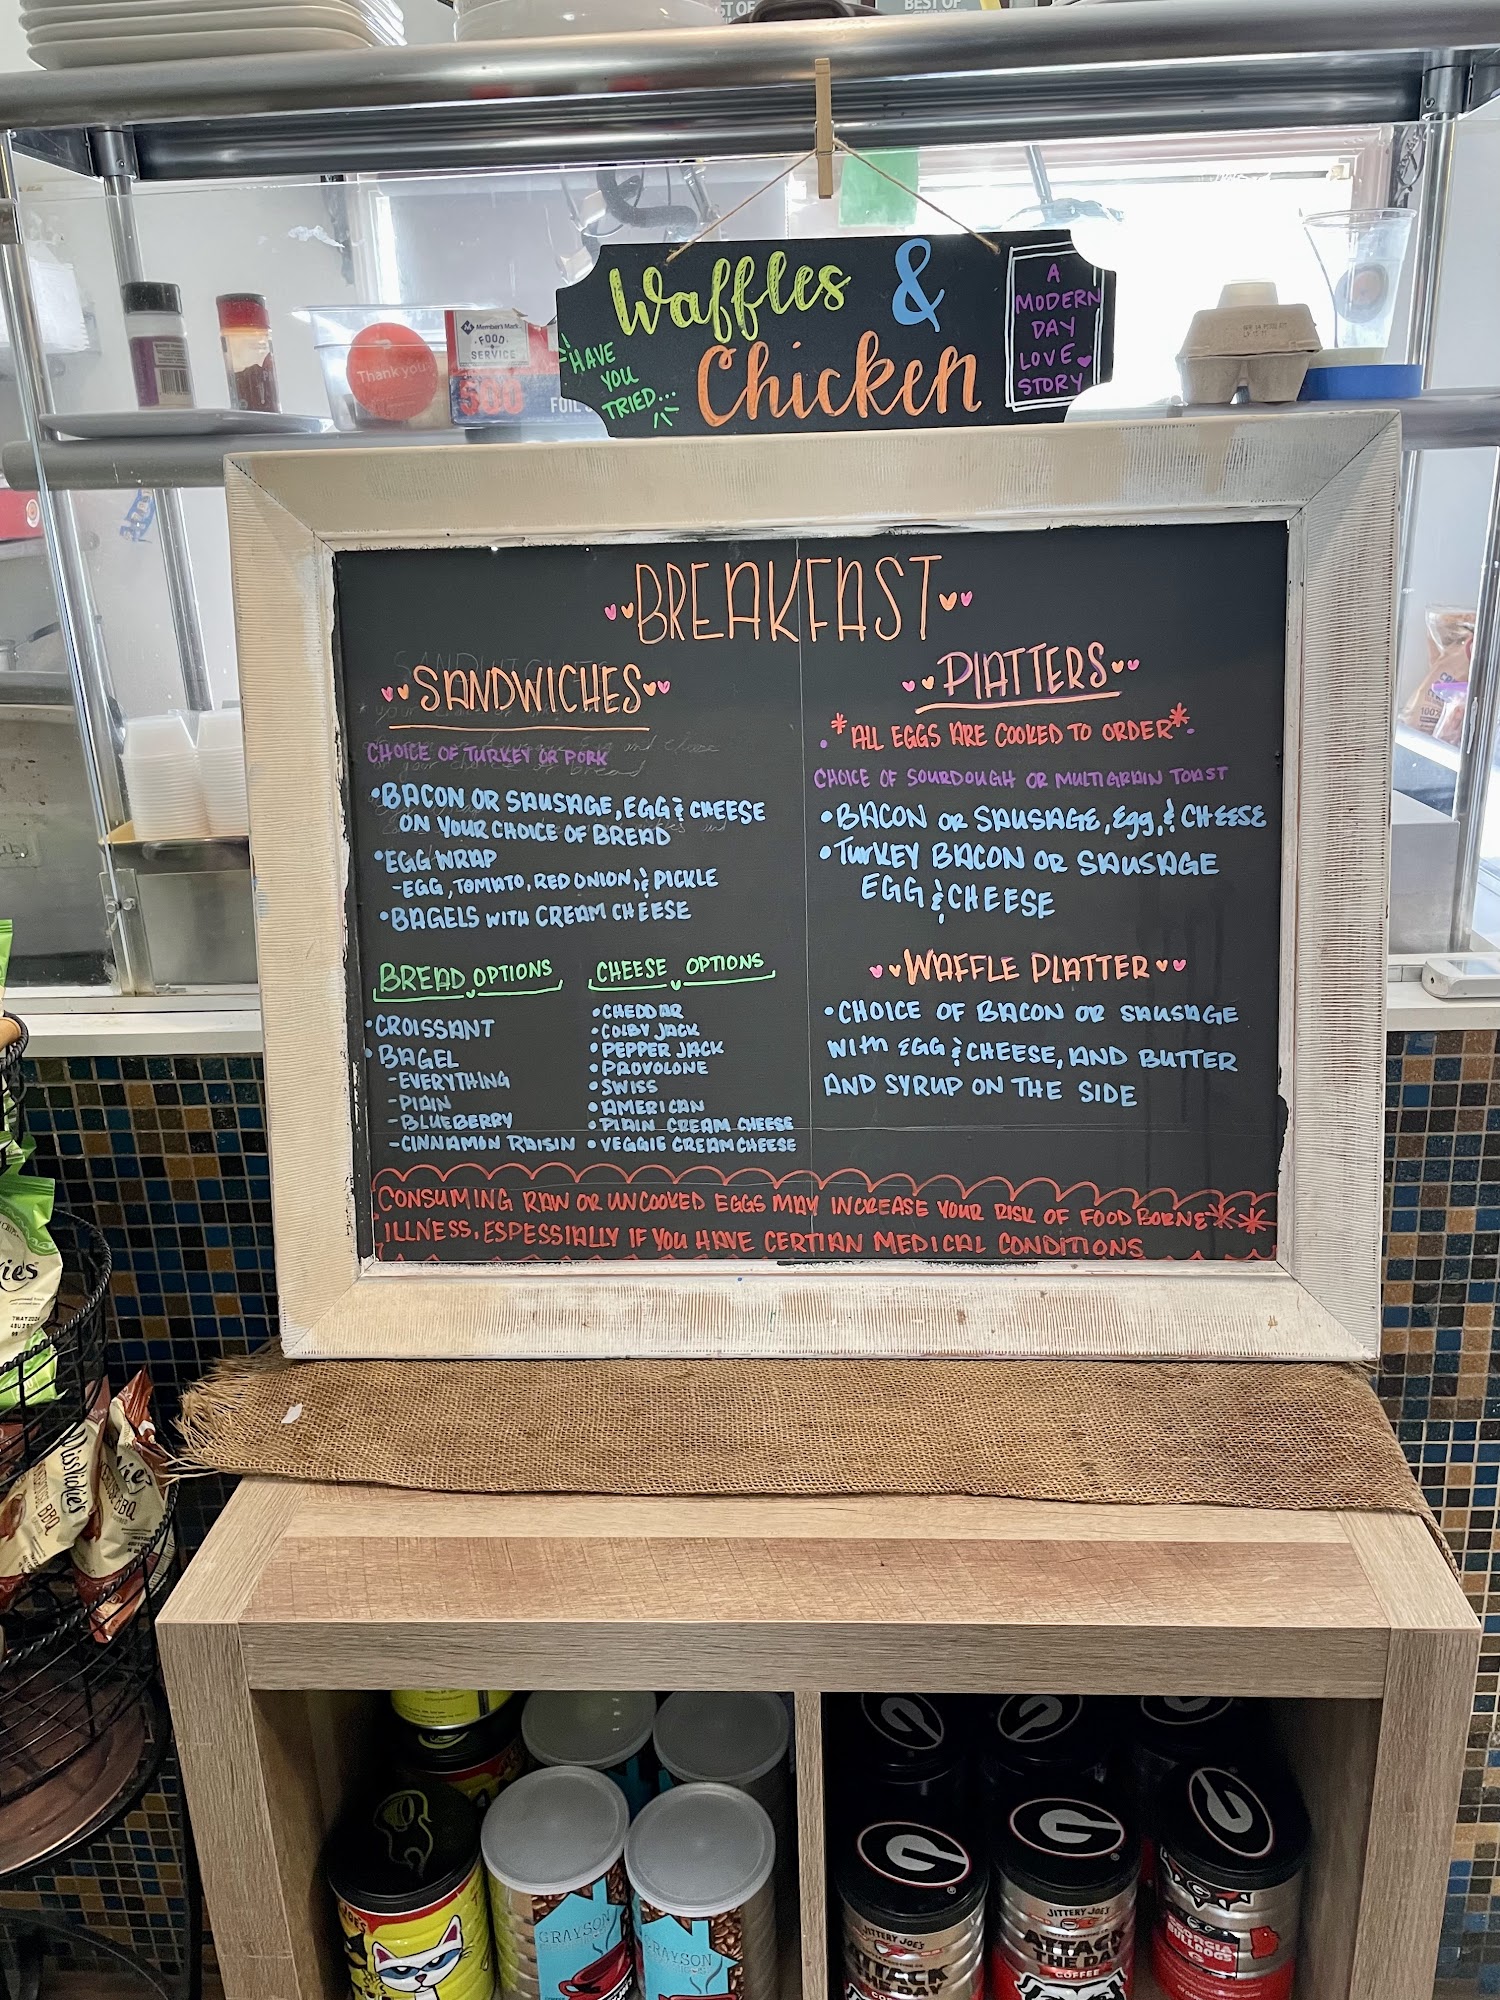 BEST OF
Waffles &
Chicken
HAVE
YOU
TRIED...
A
MODERN
DAY
LOVE
STORY
Member's Mark
FOOD
SERVICE
500
FOIL
Thank you
BREAKFAST
SANDWICHES
CHOICE OF TURKEY OR PORK
•BACON OR SAUSAGE, EGG & CHEESE
ON YOUR CHOICE OF BREAD
•EGG WRAP
-EGG, TOMATO, RED ONION, & PICKLE
•BAGELS WITH CREAM CHEESE
BREAD OPTIONS
•CROISSANT
•BAGEL
-EVERYTHING
-PLAIN
-BLUEBERRY
-CINNAMON RAISIN
CHEESE OPTIONS
•CHEDDAR
•COLBY JACK
•PEPPER JACK
•PROVOLONE
•SWISS
•AMERICAN
•PLAIN CREAM CHEESE
•VEGGIE CREAM CHEESE
PLATTERS
*ALL EGGS ARE COOKED TO ORDER*
CHOICE OF SOURDOUGH OR MULTIGRAIN TOAST
•BACON OR SAUSAGE, Egg, & CHEESE
•TURKEY BACON OR SAUSAGE
EGG & CHEESE
WAFFLE PLATTER
•CHOICE OF BACON OR SAUSAGE
WITH EGG & CHEESE, AND BUTTER
AND SYRUP ON THE SIDE
CONSUMING RAW OR UNCOOKED EGGS MAY INCREASE YOUR RISK OF FOOD BORNE**
ILLNESS, ESPESSIALLY IF YOU HAVE CERTIAN MEDICAL CONDITIONS
BBQ
GRAYSON
GRAYSON
G
G
G
JITTERY JOE'S
ATTACK
THE DAY
JITTERY JOE'S
ATTACK
THE DAY
COFFEE
GEORGIA
BULLDOGS